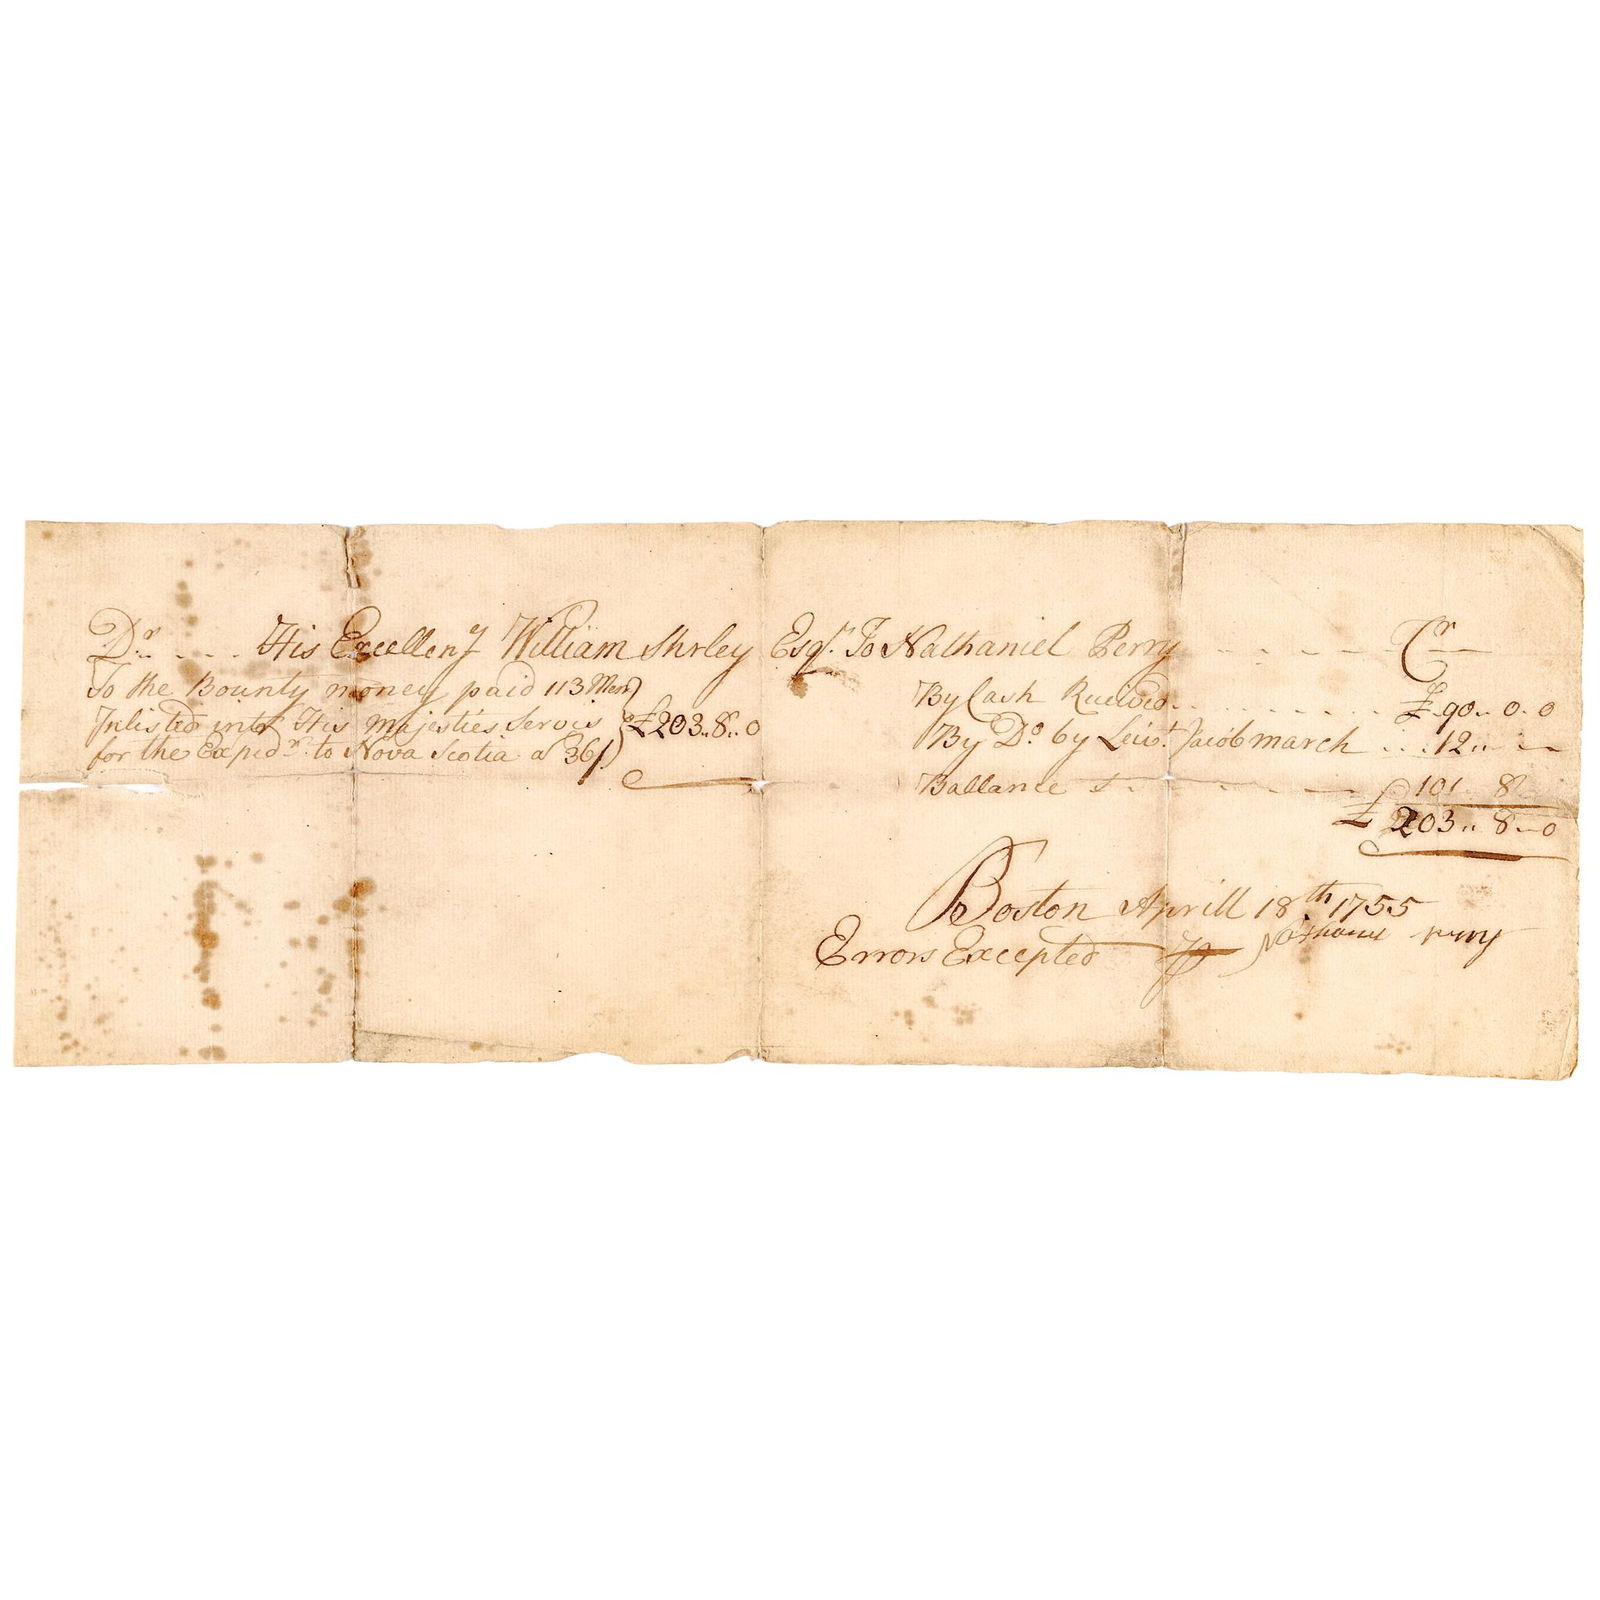 Dr. His Excellency William Shrley Esqr. To Nathaniel Perry Cr
To the Bounty money paid 113 Men
Inlisted into His majesties Servis £203..8..0
for the Expedn. to Nova Scotia a 36/
By Cash Recived £90..0..0
By Do. by Leiut. Jacob march 12..
Ballance 101 8
£203..8..0
Boston Aprill 18th 1755
Errors Excepted Nathaniel perry